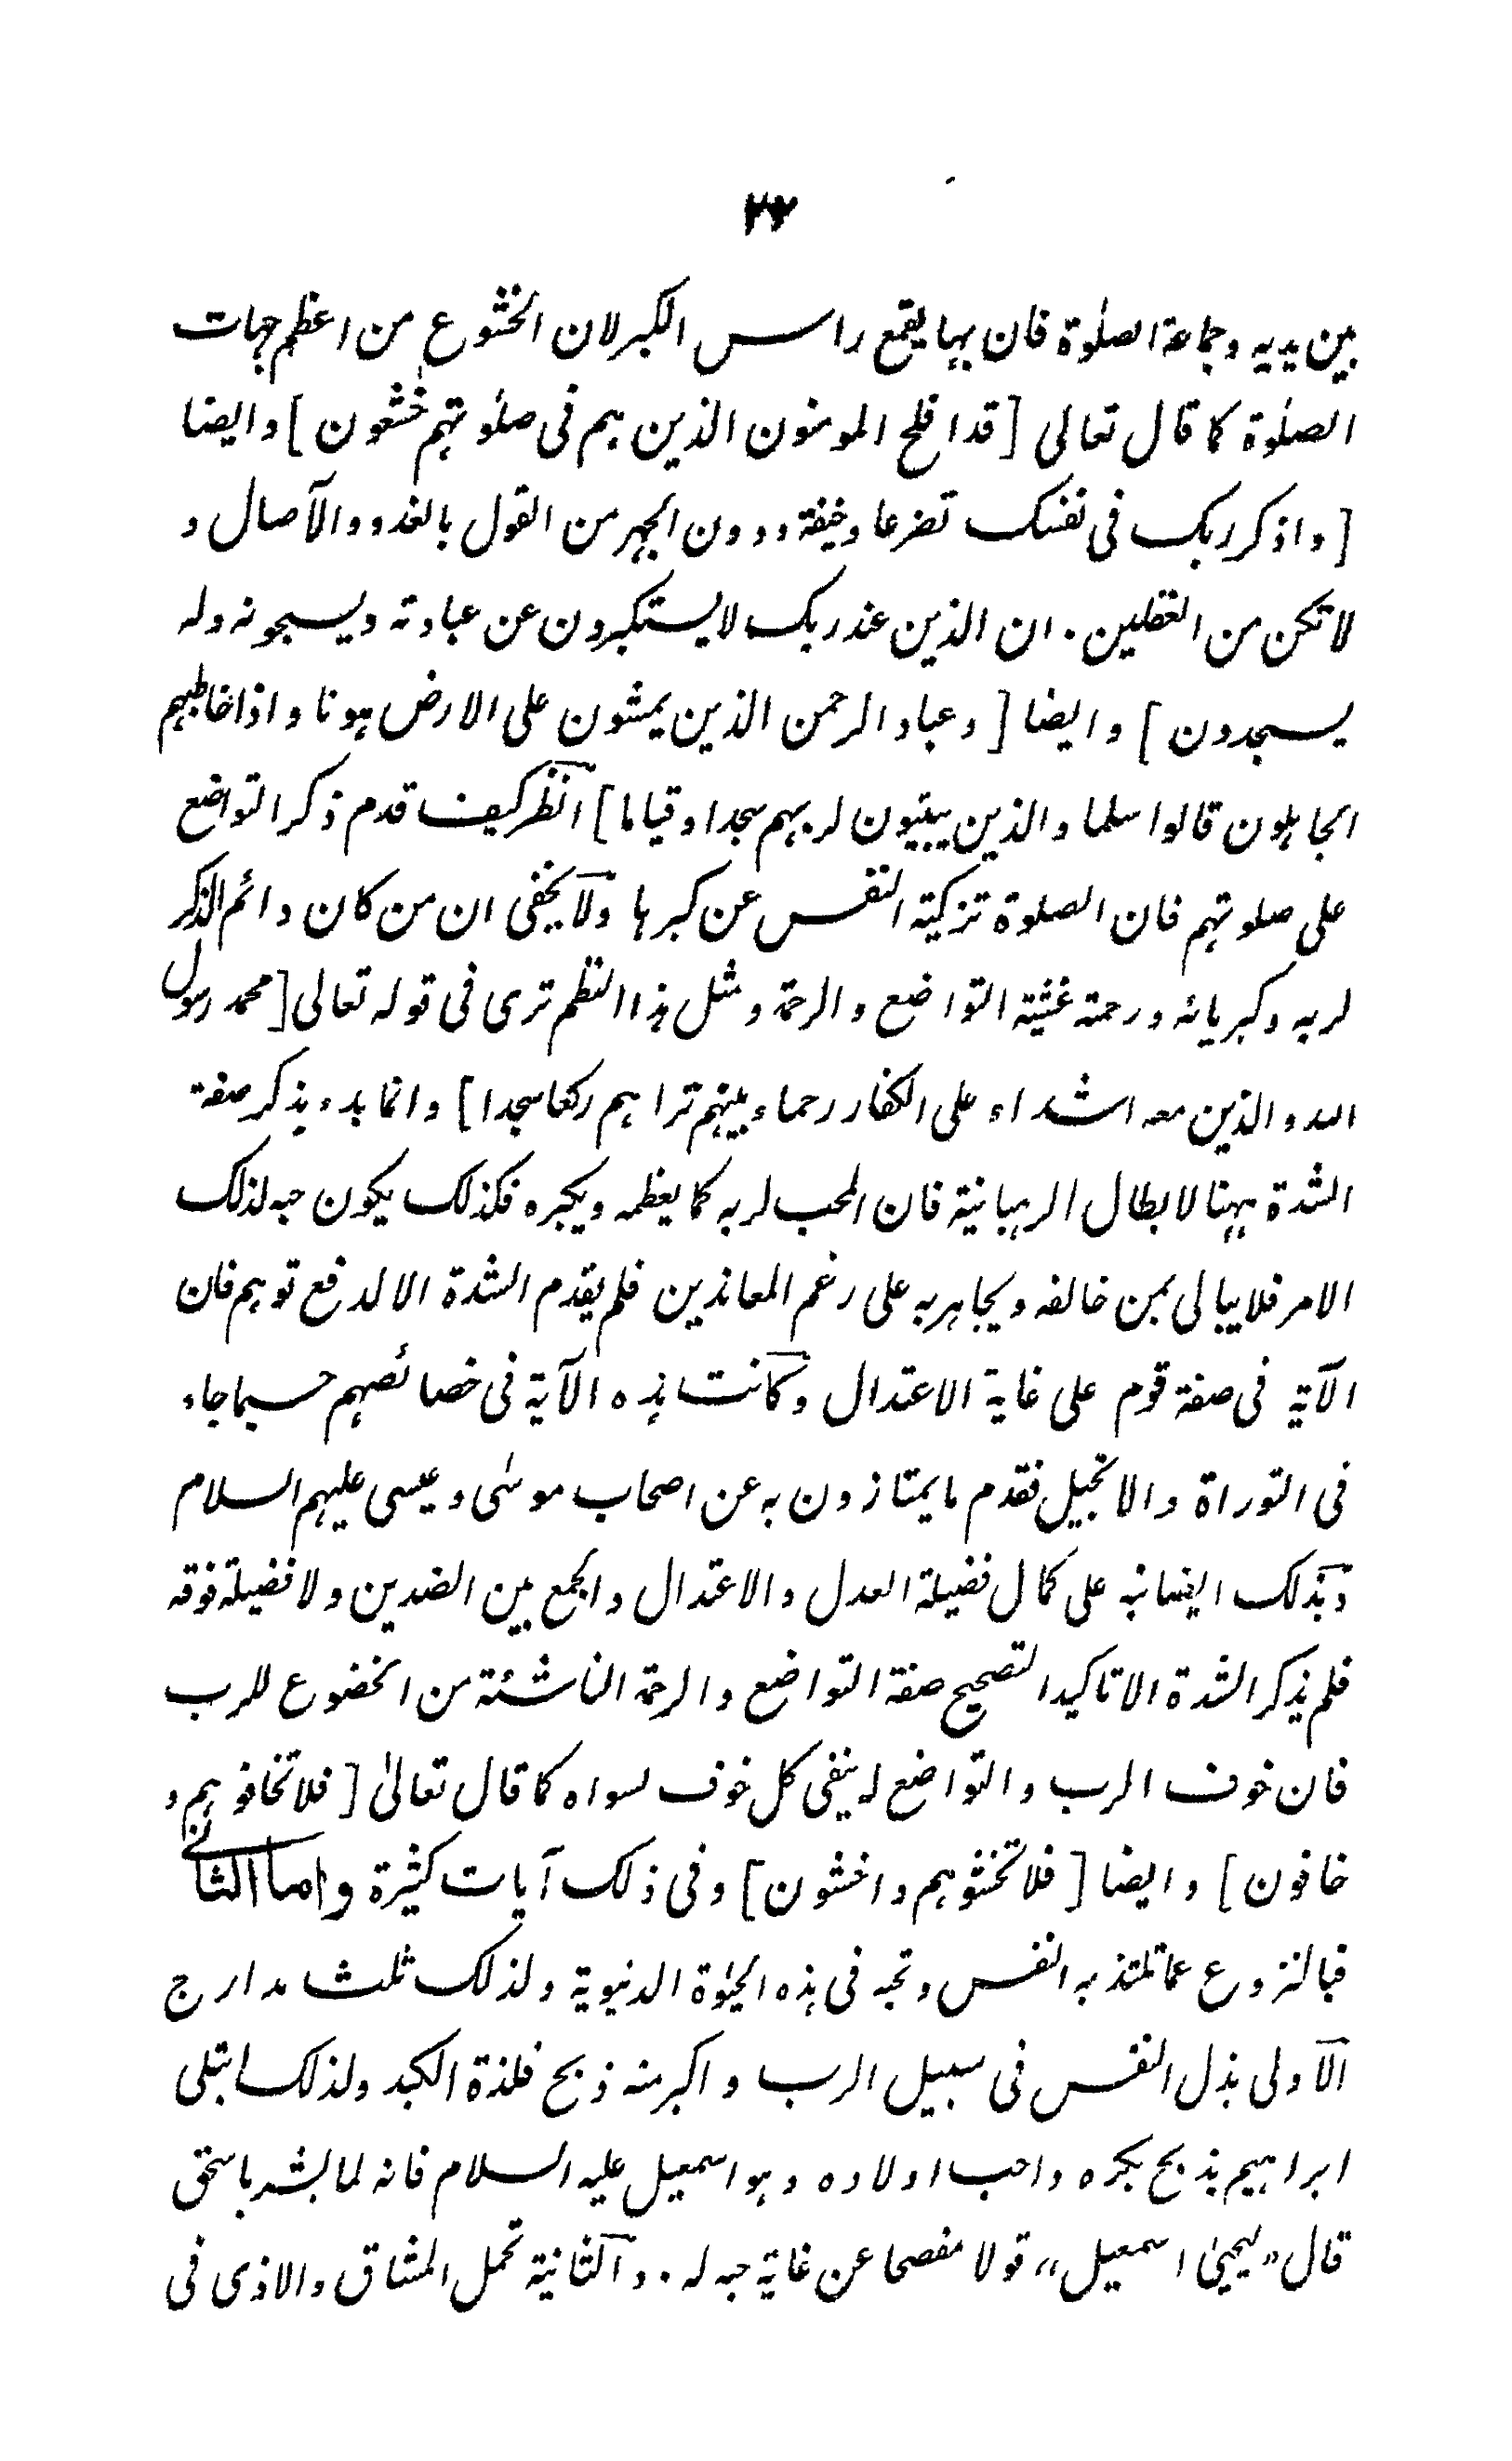 بين يديه وجماعة الصلٰوة فان بها يقمع راس الكبر لان الخشوع من اعظم جهات
الصلٰوة كما قال تعالى [قد افلح المومنون الذين هم فى صلٰوتهم خٰشعون] وايضا
[واذكر ربك فى نفسك تضرعا وخيفة ودون الجهر من القول بالغدو والآصال و
لا تكن من الغٰفلين. ان الذين عند ربك لا يستكبرون عن عبادته ويسبحونه وله
يسجدون] وايضا [وعباد الرحمن الذين يمشون على الارض هونا واذا خاطبهم
الجاهلون قالوا سلما والذين يبيتون لربهم سجدا وقياما] انظر كيف قدم ذكر التواضع
على صلوتهم فان الصلوة تزكية النفس عن كبرها ولا يخفى ان من كان دائم الذكر
لربه وكبريائه ورحمته غشيته التواضع والرحمة ومثل هذا النظم ترى فى قوله تعالى [محمد رسول
الله والذين معه اشداء على الكفار رحماء بينهم تراهم ركعا سجدا] وانما بدء بذكر صفة
الشدة ههنا لابطال الرهبانية فان المحب لربه كما يعظمه ويكبره فكذلك يكون حبه لذلك
الامر فلا يبالى بمن خالفه ويجاهر به على رغم المعاندين فلم يقدم الشدة الا لدفع توهم فان
الآية فى صفة قوم على غاية الاعتدال وكانت هذه الآية فى خصائصهم حسبما جاء
فى التوراة والانجيل فقدم ما يمتازون به عن اصحاب موسٰى وعيسى عليهم السلام
وبذلك ايضا نبه على كمال فضيلة العدل والاعتدال والجمع بين الضدين ولا فضيلة فوقه
فلم يذكر الشدة الا تاكيدا لتصحيح صفة التواضع والرحمة الناشئة من الخضوع للرب
فان خوف الرب والتواضع له ينفى كل خوف لسواه كما قال تعالىٰ [فلا تخافوهم و
خافون] وايضا [فلا تخشوهم واخشون] وفى ذلك آيات كثيرة واما الثانى
فبالنزوع عما تلتذ به النفس وتحبه فى هذه الحيٰوة الدنيوية ولذلك ثلث مدارج
الاولى بذل النفس فى سبيل الرب واكبر منه ذبح فلذة الكبد ولذلك ابتلى
ابراهيم بذبح بكره واحب اولاده وهو اسمعيل عليه السلام فانه لما بشر باسحٰق
قال "ليحيىٰ اسمعيل" قولا مفصحا عن غاية حبه له. والثانية تحمل المشاق والاذى فى